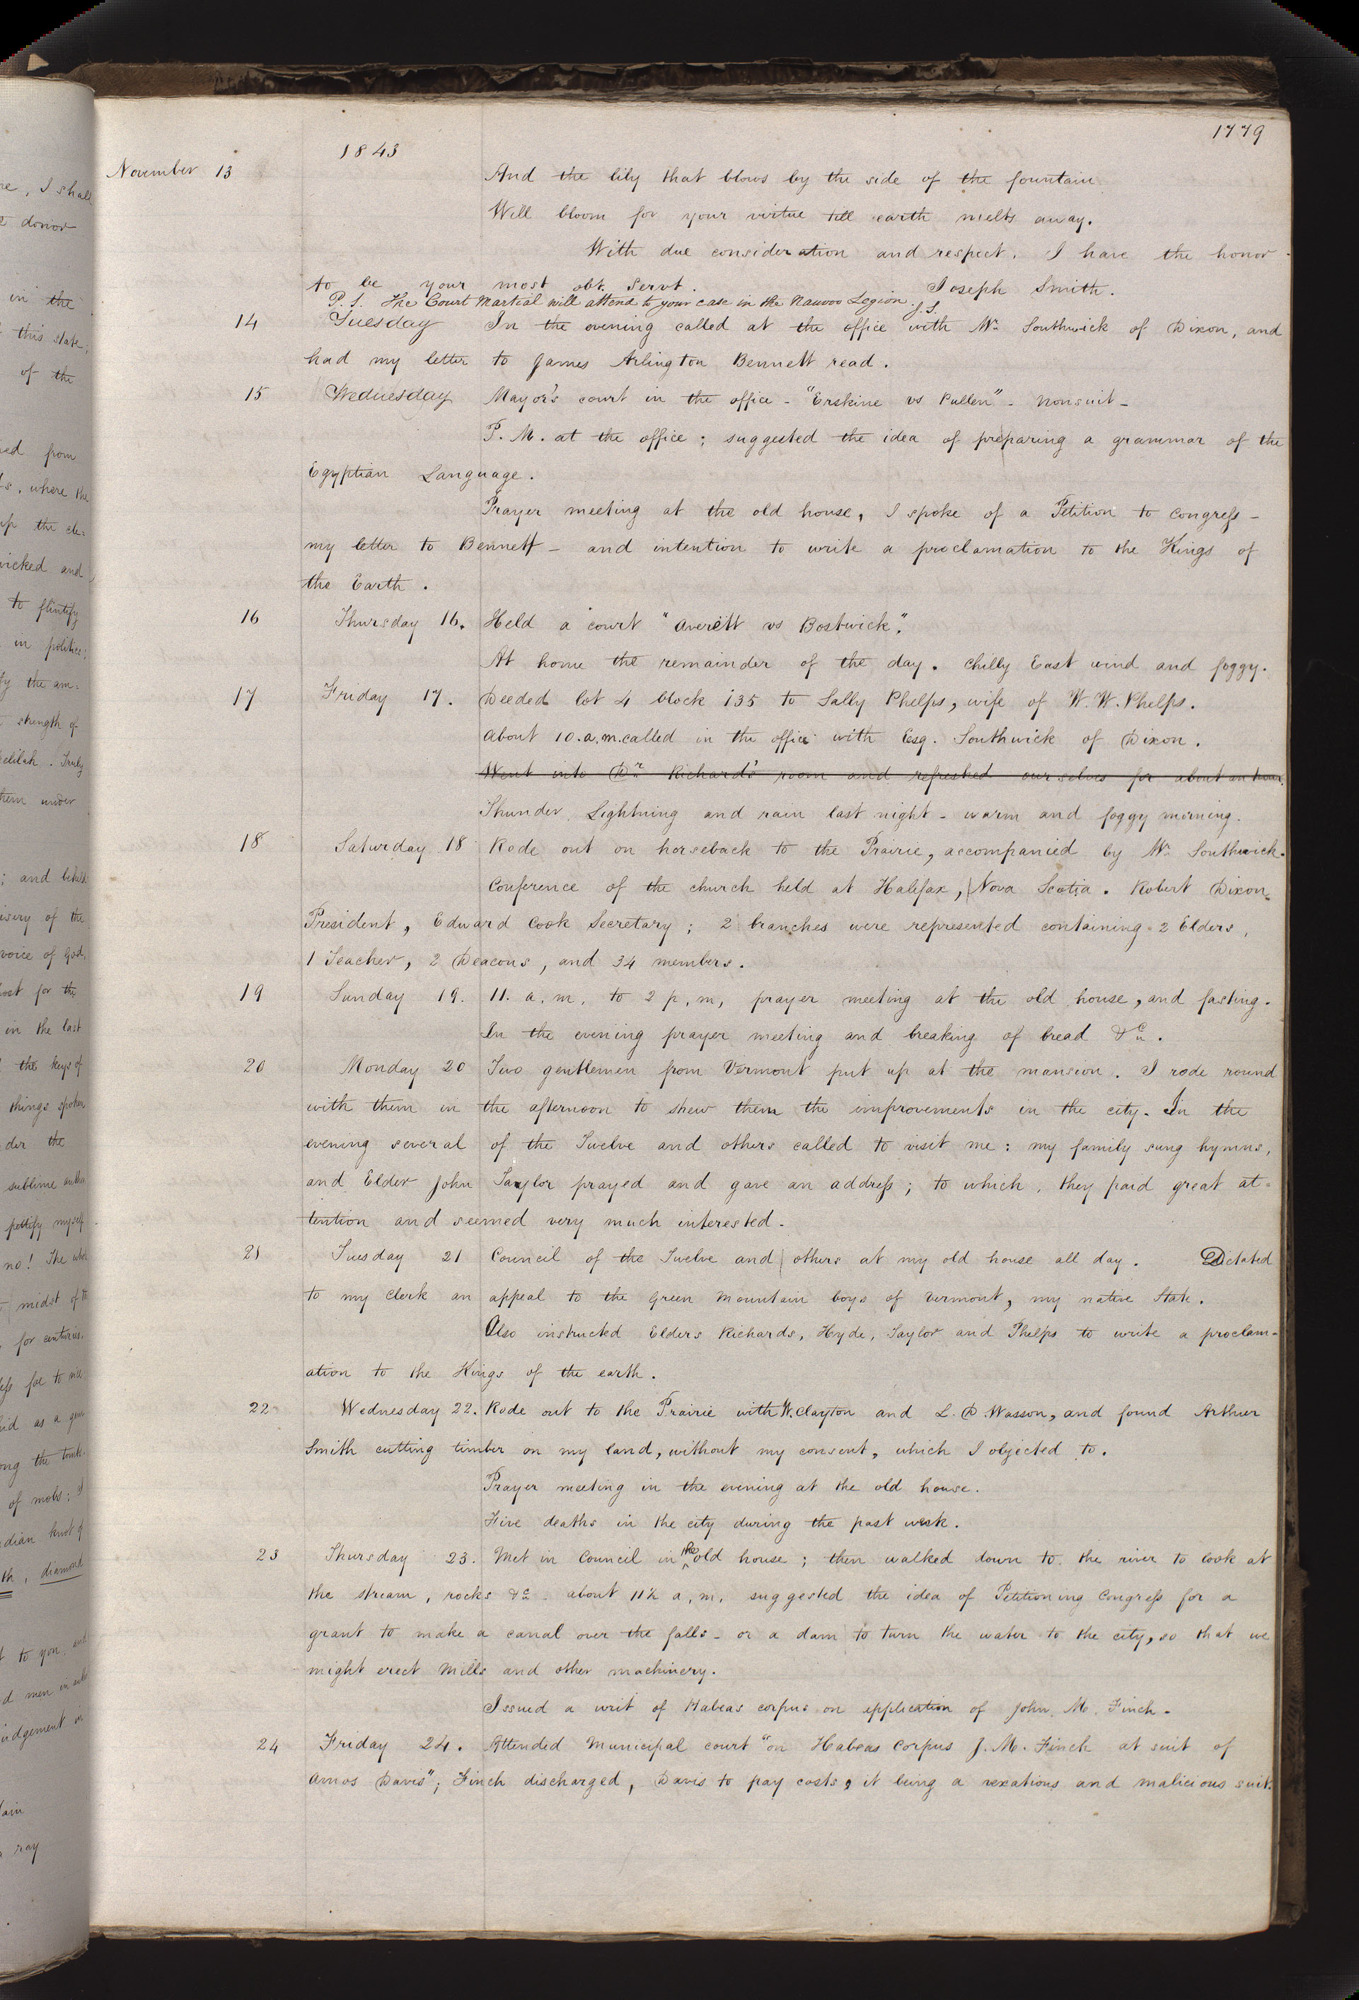 1779
1843
November 13 And the lily that blows by the side of the fountain
Will bloom for your virtue till earth melts away.
With due consideration and respect, I have the honor
to be your most obt. Servt. Joseph Smith.
P.S. The Court Martial will attend to your case in the Nauvoo Legion. J.S.
14 Tuesday In the evening called at the office with Mr. Southwick of Dixon, and
had my letter to James Arlington Bennett read.
15 Wednesday Mayor's court in the office - "Erskine vs Pullen" - nonsuit -
P.M. at the office; suggested the idea of preparing a grammar of the
Egyptian Language.
Prayer meeting at the old house, I spoke of a Petition to Congress -
my letter to Bennett - and intention to write a proclamation to the Kings of
the Earth.
16 Thursday 16. Held a court "Averett vs Bostwick".
At home the remainder of the day. Chilly East wind and foggy.
17 Friday 17. Deeded lot 4 block 135 to Sally Phelps, wife of W. W. Phelps.
About 10. a.m. called in the office with Esq. Southwick of Dixon.
Went into Dr. Richard's room and refreshed ourselves for about an hour.
Thunder, Lightning and rain last night - warm and foggy morning.
18 Saturday 18 Rode out on horseback to the Prairie, accompanied by Mr. Southwick.
Conference of the church held at Halifax, Nova Scotia. Robert Dixon
President, Edward Cook Secretary; 2 branches were represented containing 2 Elders,
1 Teacher, 2 Deacons, and 34 members.
19 Sunday 19. 11. a.m. to 2 p.m, prayer meeting at the old house, and fasting.
In the evening prayer meeting and breaking of bread &c.
20 Monday 20 Two gentlemen from Vermont put up at the mansion. I rode round
with them in the afternoon to shew them the improvements in the city. In the
evening several of the Twelve and others called to visit me: my family sung hymns,
and Elder John Taylor prayed and gave an address; to which, they paid great at=
tention and seemed very much interested.
21 Tuesday 21 Council of the Twelve and others at my old house all day. Dictated
to my clerk an appeal to the Green Mountain boys of Vermont, my native State.
Also instructed Elders Richards, Hyde, Taylor and Phelps to write a proclam=
ation to the Kings of the earth.
22 Wednesday 22. Rode out to the Prairie with W. Clayton and L. D. Wasson, and found Arthur
Smith cutting timber on my land, without my consent, which I objected to.
Prayer meeting in the evening at the old house.
Five deaths in the city during the past week.
23 Thursday 23. Met in Council in the old house; then walked down to the river to look at
the stream, rocks &c. about 11½ a.m. suggested the idea of Petitioning Congress for a
grant to make a canal over the falls - or a dam to turn the water to the city, so that we
might erect Mills and other machinery.
Issued a writ of Habeas corpus on application of John M. Finch.
24 Friday 24. Attended Municipal court "on Habeas Corpus J. M. Finch at suit of
Amos Davis"; Finch discharged, Davis to pay costs, it being a vexatious and malicious suit.